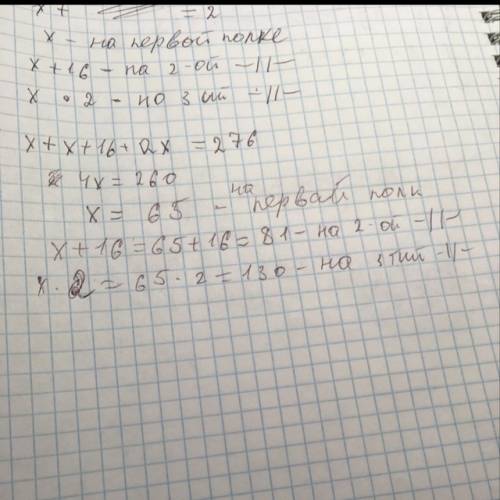 x + = 2
x - на первой полке
x + 16 - на 2-ой -11-
x • 2 - на 3 ий -11-
x + x + 16 + 2x = 276
4x = 260
x = 65 - на первой полк
x + 16 = 65 + 16 = 81 - на 2-ой -11-
x . 2 = 65 · 2 = 130 - на 3 тий -11-